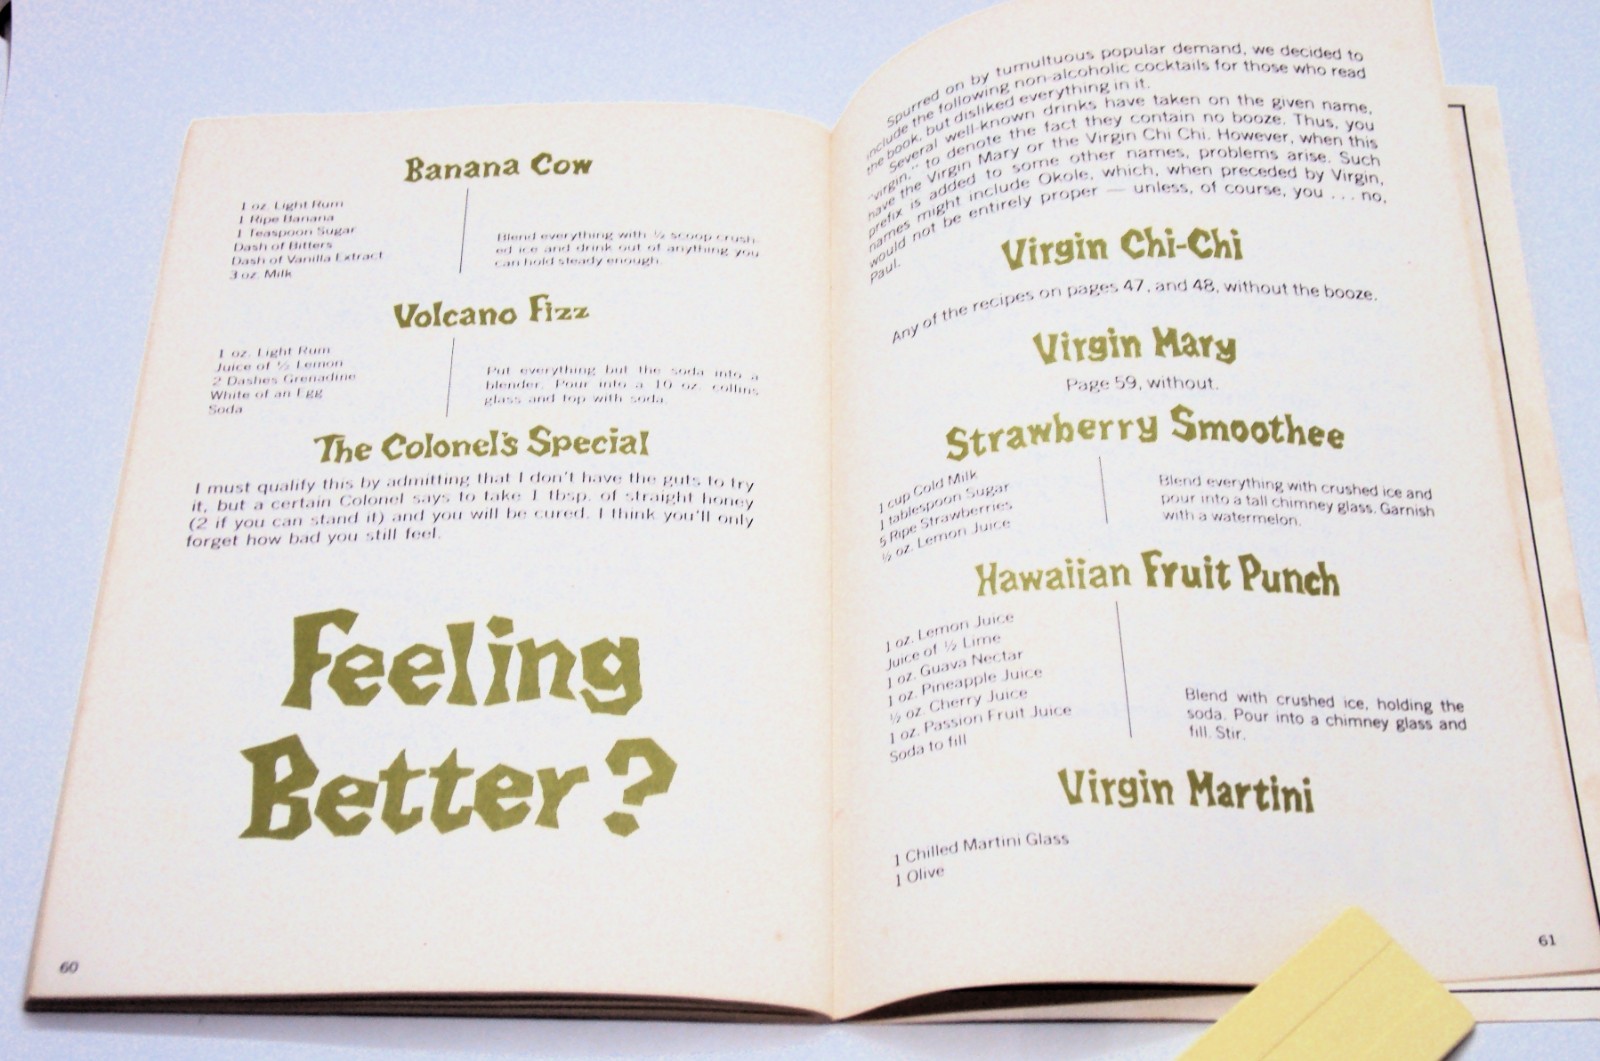 Banana Cow
1 oz. Light Rum
1 Ripe Banana
1 Teaspoon Sugar
Dash of Bitters
Dash of Vanilla Extract
3 oz. Milk
Blend everything with ½ scoop crush-
ed ice and drink out of anything you
can hold steady enough.
Volcano Fizz
1 oz. Light Rum
Juice of ½ Lemon
2 Dashes Grenadine
White of an Egg
Soda
Put everything but the soda into a
blender. Pour into a 10 oz. collins
glass and top with soda.
The Colonel's Special
I must qualify this by admitting that I don't have the guts to try
it, but a certain Colonel says to take 1 tbsp. of straight honey
(2 if you can stand it) and you will be cured. I think you'll only
forget how bad you still feel.
Feeling
Better?
60
Spurred on by tumultuous popular demand, we decided to
include the following non-alcoholic cocktails for those who read
the book, but disliked everything in it.
Several well-known drinks have taken on the given name,
"virgin," to denote the fact they contain no booze. Thus, you
have the Virgin Mary or the Virgin Chi Chi. However, when this
prefix is added to some other names, problems arise. Such
names might include Okole, which, when preceded by Virgin,
would not be entirely proper — unless, of course, you . . . no,
Paul.
Virgin Chi-Chi
Any of the recipes on pages 47, and 48, without the booze.
Virgin Mary
Page 59, without.
Strawberry Smoothee
1 cup Cold Milk
1 tablespoon Sugar
5 Ripe Strawberries
½ oz. Lemon Juice
Blend everything with crushed ice and
pour into a tall chimney glass. Garnish
with a watermelon.
Hawaiian Fruit Punch
1 oz. Lemon Juice
Juice of ½ Lime
1 oz. Guava Nectar
1 oz. Pineapple Juice
½ oz. Cherry Juice
1 oz. Passion Fruit Juice
Soda to fill
Blend with crushed ice, holding the
soda. Pour into a chimney glass and
fill. Stir.
Virgin Martini
1 Chilled Martini Glass
1 Olive
61